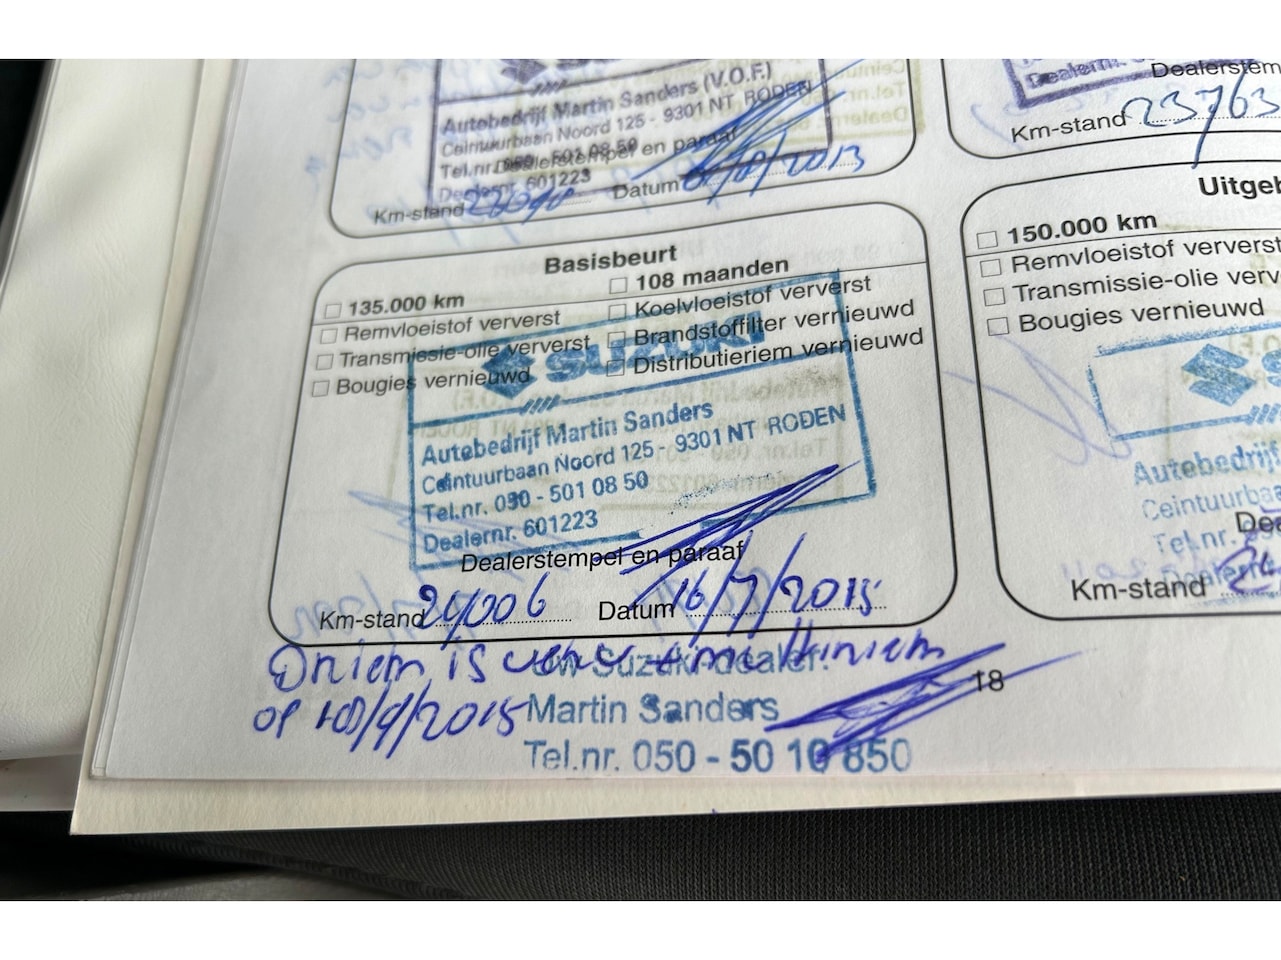 Autobedrijf Martin Sanders (V.O.F.)
Ceintuurbaan Noord 125 - 9301 NT RODEN
Tel.nr. 050 - 501 08 50
Dealerstempel en paraaf
Dealernr. 601223
Km-stand Datum 2013
Dealerstem
Km-stand 23763
Basisbeurt
135.000 km
108 maanden
Remvloeistof ververst
Koelvloeistof ververst
Transmissie-olie ververst
Brandstoffilter vernieuwd
Bougies vernieuwd
Distributieriem vernieuwd
SUZUKI
Autobedrijf Martin Sanders
Ceintuurbaan Noord 125 - 9301 NT RODEN
Tel.nr. 050 - 501 08 50
Dealernr. 601223
Dealerstempel en paraaf
Km-stand 24006 Datum 16/7/2015
is
Uw Suzuki-dealer:
op /9/2015
Martin Sanders
Tel.nr. 050 - 50 10 850
18
Uitgeb
150.000 km
Remvloeistof ververst
Transmissie-olie verv
Bougies vernieuwd
Autobedrijf
Ceintuurbaa
Tel.nr.
De
Km-stand